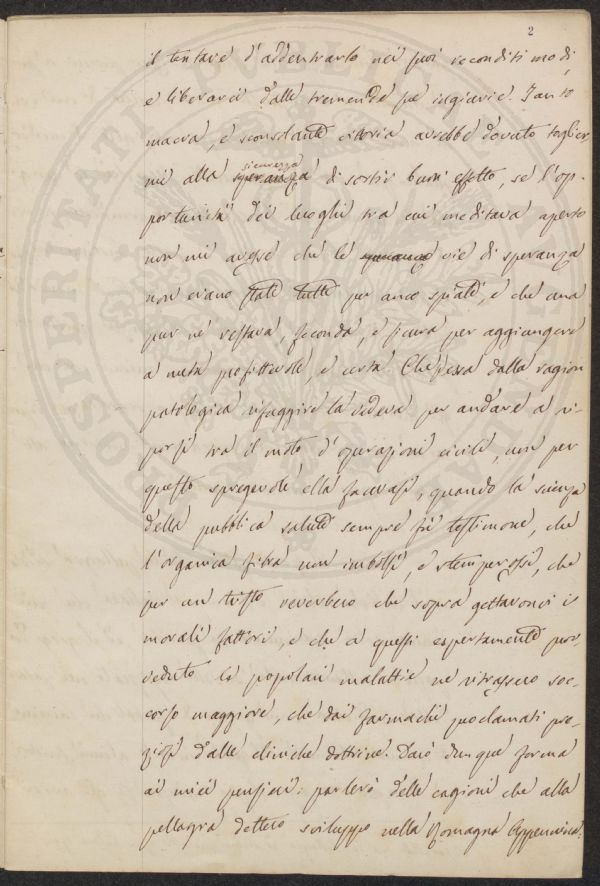 2
il tentare d'addentrarlo nei suoi reconditi modi,
e liberarci dalle tremende sue ingiurie! Tanto
macra, e sconsolante istoria avrebbe dovuto toglier
mi alla sicurezza
speranza di sortir buon effetto, se l'op-
portunità dei luoghi tra cui meditava aperto
non mi avesse che le vie di speranza
non erano state tutte per anco spiate, e che una
pur ne restava, feconda, e sicura per aggiungere
a meta profittevole, e certa. Che s'essa dalla ragion
patologica rifuggire la vedeva per andare a ri-
porsi tra il moto d'operazioni civili, non per
questo spregevole ella facevasi, quando la scienza
della pubblica salute sempre fu testimone, che
l'organica fibra non imbolsì, e stemperossi, che
per un tristo reverbero che sopra gettaronci i
morali fattori, e che a questi espertamente prov-
veduto le popolari malattie ne ritrassero soc-
corso maggiore, che dai farmachi proclamati pre-
ziosi dalle cliniche dottrine. Darò dunque forma
ai miei pensieri: parlerò delle cagioni che alla
pellagra dettero sviluppo nella Romagna Appennina:
PROSPERITATI PUBLICAE